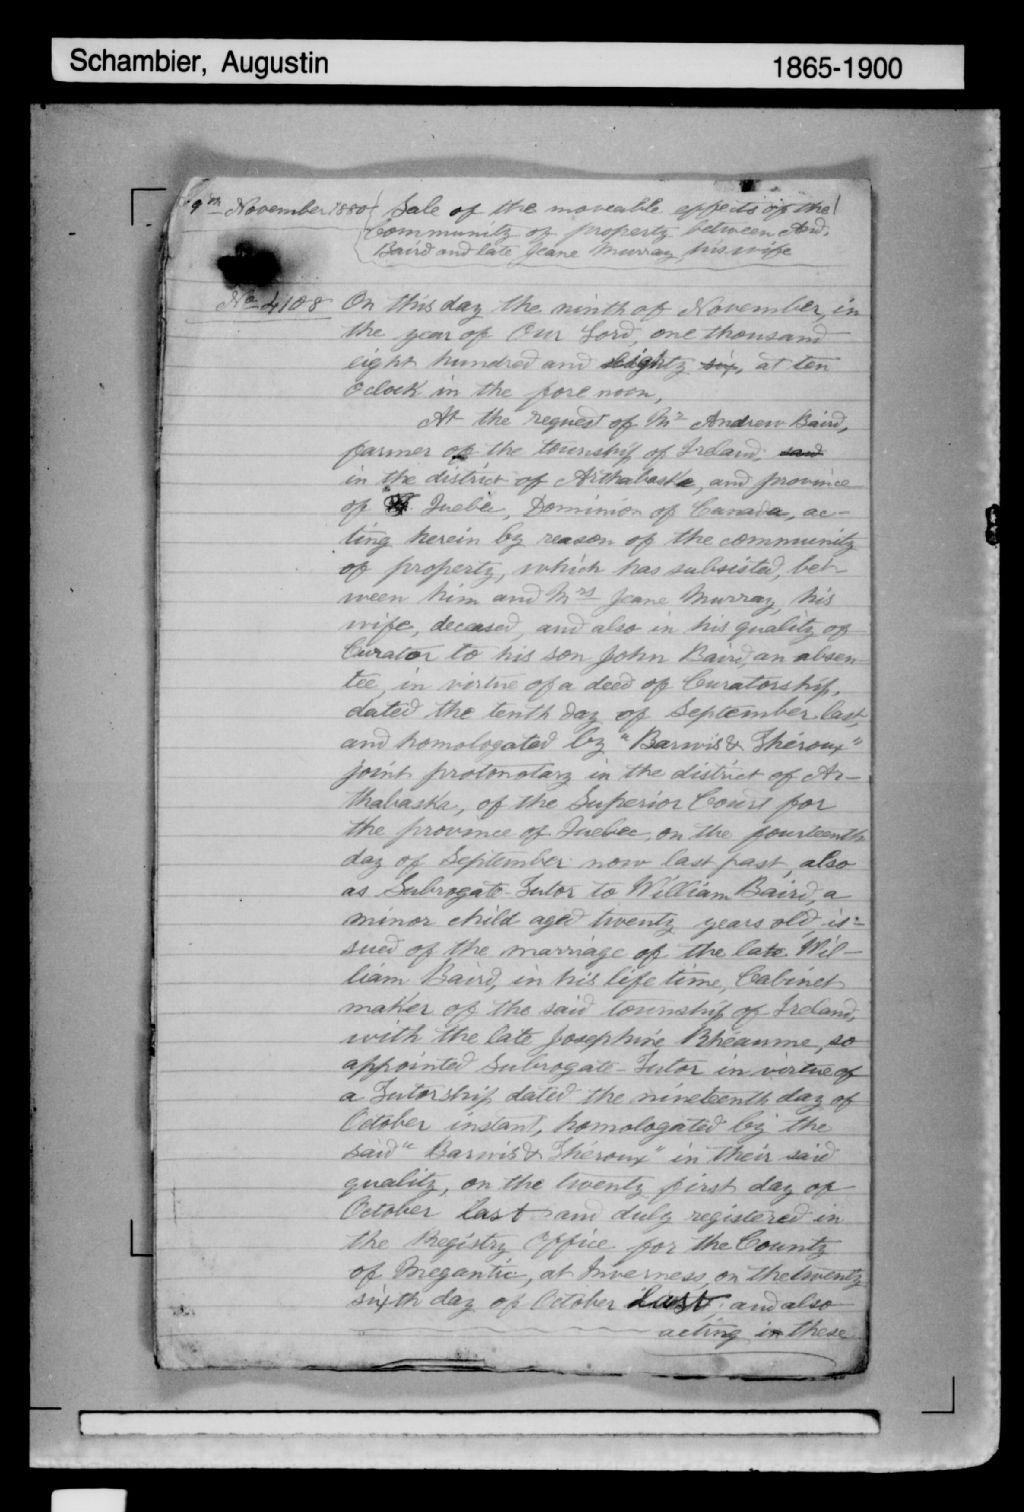 Schambier, Augustin 1865-1900
9th November 1880 Sale of the moveable effects of the
Community of property between And.
Baird and late Jeane Murray his wife
No 4108 On this day the ninth of November, in
the year of Our Lord, one thousand
eight hundred and eighty six, at ten
O'clock in the fore noon,
At the request of Mr Andrew Baird,
farmer of the township of Ireland, said
in the district of Arthabaska, and province
of Quebec, Dominion of Canada, ac-
ting herein by reason of the community
of property, which has subsisted, bet-
ween him and Mrs Jeane Murray, his
wife, deceased, and also in his quality of
Curator to his son John Baird, an absen-
tee, in virtue of a deed of Curatorship,
dated the tenth day of September last,
and homologated by "Barwis & Théroux"
joint protonotary in the district of Ar-
thabaska, of the Superior Court for
the province of Quebec, on the fourteenth
day of September now last past, also
as Subrogate-Tutor to William Baird, a
minor child aged twenty years old, is-
sued of the marriage of the late Wil-
liam Baird, in his life time, Cabinet
maker of the said township of Ireland,
with the late Josephine Rhéaume, so
appointed Subrogate-Tutor in virtue of
a Tutorship dated the nineteenth day of
October instant, homologated by the
said "Barwis & Théroux" in their said
quality, on the twenty first day of
October last and duly registered in
the Registry Office for the County
of Megantic, at Inverness, on the twenty
sixth day of October last, and also
acting in these